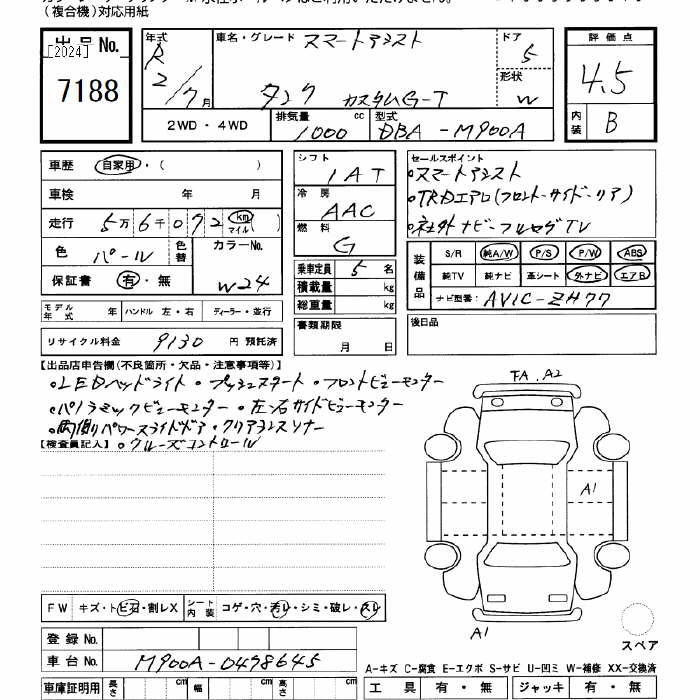 (複合機)対応用紙
[2024]
出品No. 7188
年式 R 2/7月
車名・グレード スマートアシスト
タンク カスタムG-T
ドア 5
形状 W
2WD・4WD
排気量 1000 cc
型式 DBA-M900A
評価点 4.5
内装 B
車歴 自家用・( )
車検 年 月
走行 5万6千092 km マイル( )
色 パール 色替 カラーNo. W24
保証書 有・無
モデル年式 年 ハンドル 左・右 ディーラー・並行
リサイクル料金 9130 円 預託済
シフト IAT
冷房 AAC
燃料 G
乗車定員 5 名
積載量 kg
総重量 kg
書類期限
月 日
セールスポイント
•スマートアシスト
•TRDエアロ(フロント・サイド・リア)
•社外ナビ・フルセグTV
装備品
S/R 純A/W P/S P/W ABS
純TV 純ナビ 革シート 外ナビ エアB
ナビ型番: AVIC-ZH77
後日品
【出品店申告欄(不良箇所・欠品・注意事項等)】
•LEDヘッドライト・プッシュスタート・フロントビューモニター
•パノラミックビューモニター・左右サイドビューモニター
•両側パワースライドドア・クリアランスソナー
【検査員記入】 •クルーズコントロール
FA、A2
A1
A1
スペア
FW キズ・ト ビ石・割レX シート内装 コゲ・穴・汚レ・シミ・破レ・スレ
登録No.
車台No. M900A-0498645
車庫証明用 長さ cm 幅 cm 高さ cm
A-キズ C-腐食 E-エクボ S-サビ U-凹ミ W-補修 XX-交換済
工具 有・無 ジャッキ 有・無